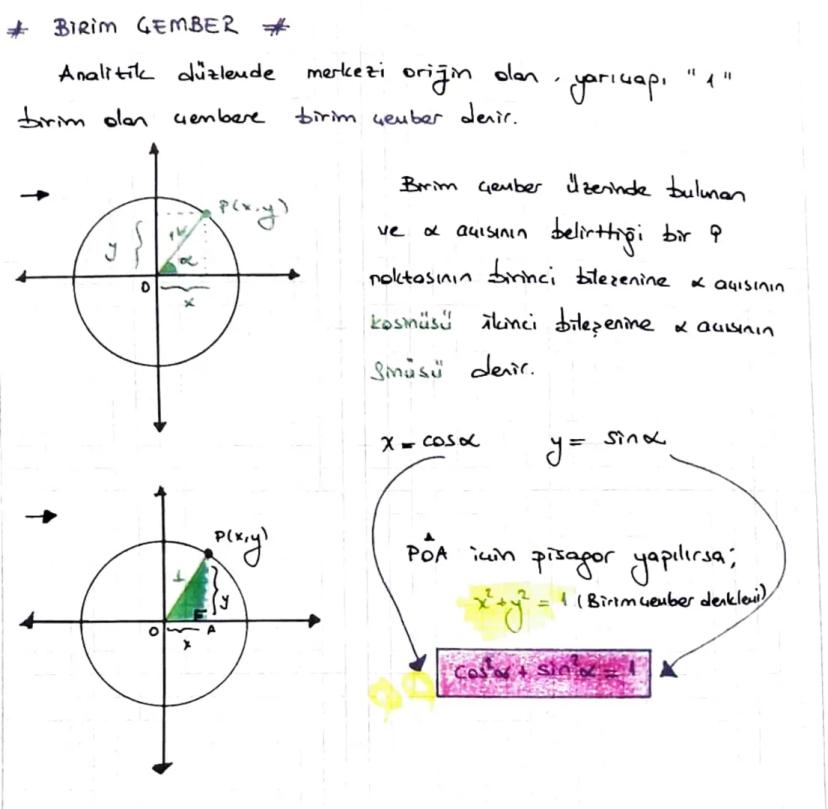 * BİRİM ÇEMBER *
Analitik düzlemde merkezi orijin olan, yarıçapı "1"
birim olan çembere birim çember denir.
P(x,y)
y
1
α
O
x
Birim çember üzerinde bulunan
ve α açısının belirttiği bir P
noktasının birinci bileşenine α açısının
kosinüsü ikinci bileşenine α açısının
sinüsü denir.
x = cosα y = sinα
P(x,y)
1
y
O
A
x
POA için pisagor yapılırsa;
x² + y² = 1 (Birim çember denklemi)
cos²α + sin²α = 1